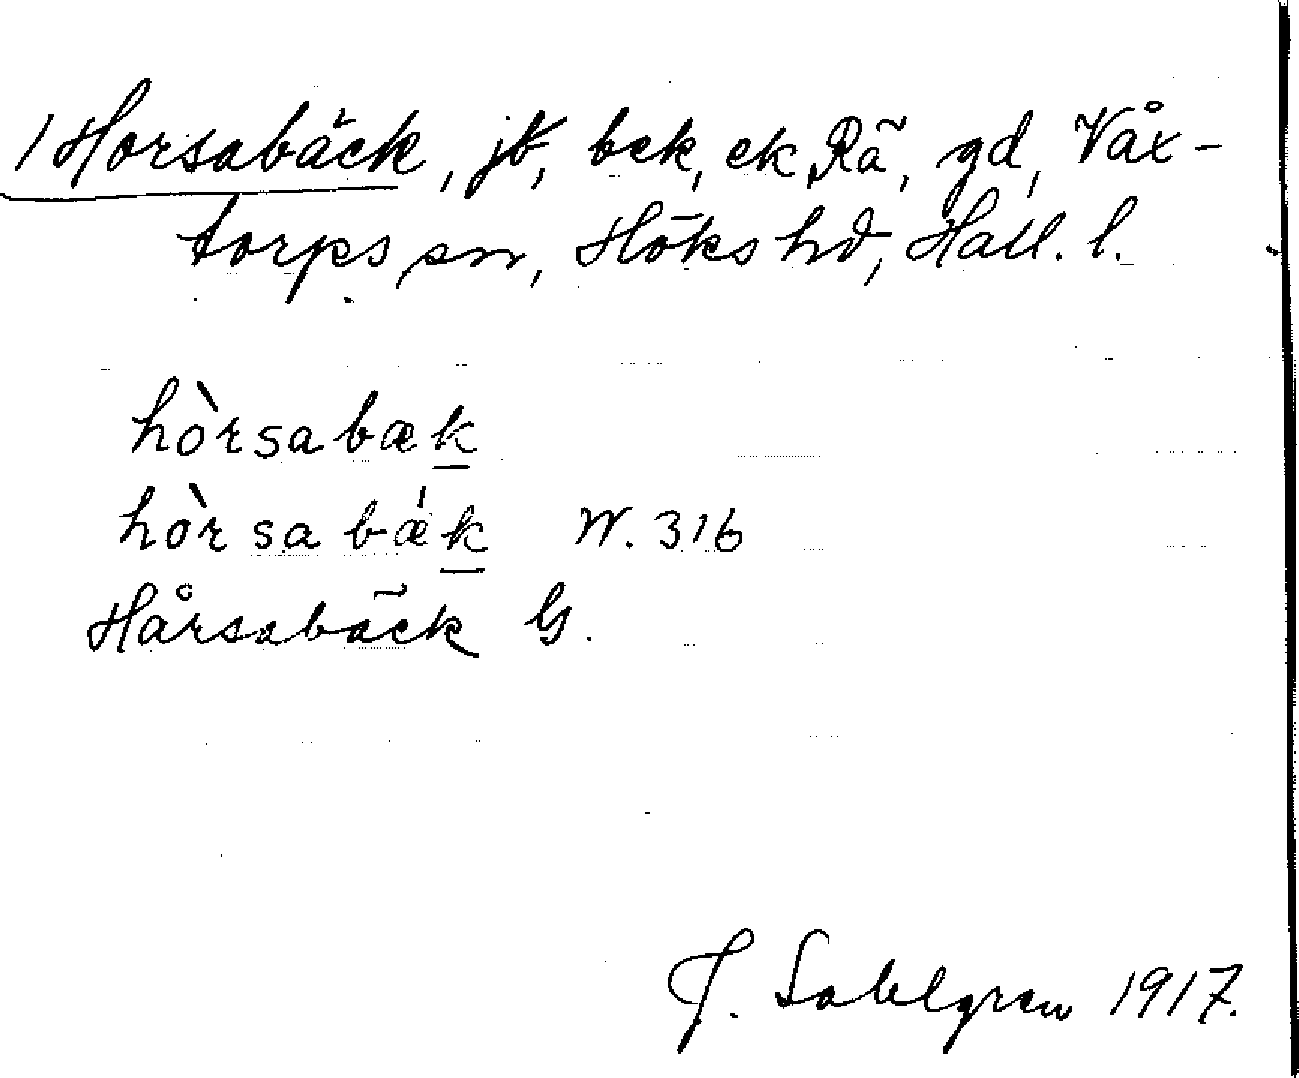 /Horsabäck, jb, bek, ek, Rä, gd, Våx-
torps sn, Höks hd, Hall. l.
hòrsabæk
hòrsabǽk W. 316
Hårsabäck G.
J. Sahlgren 1917.